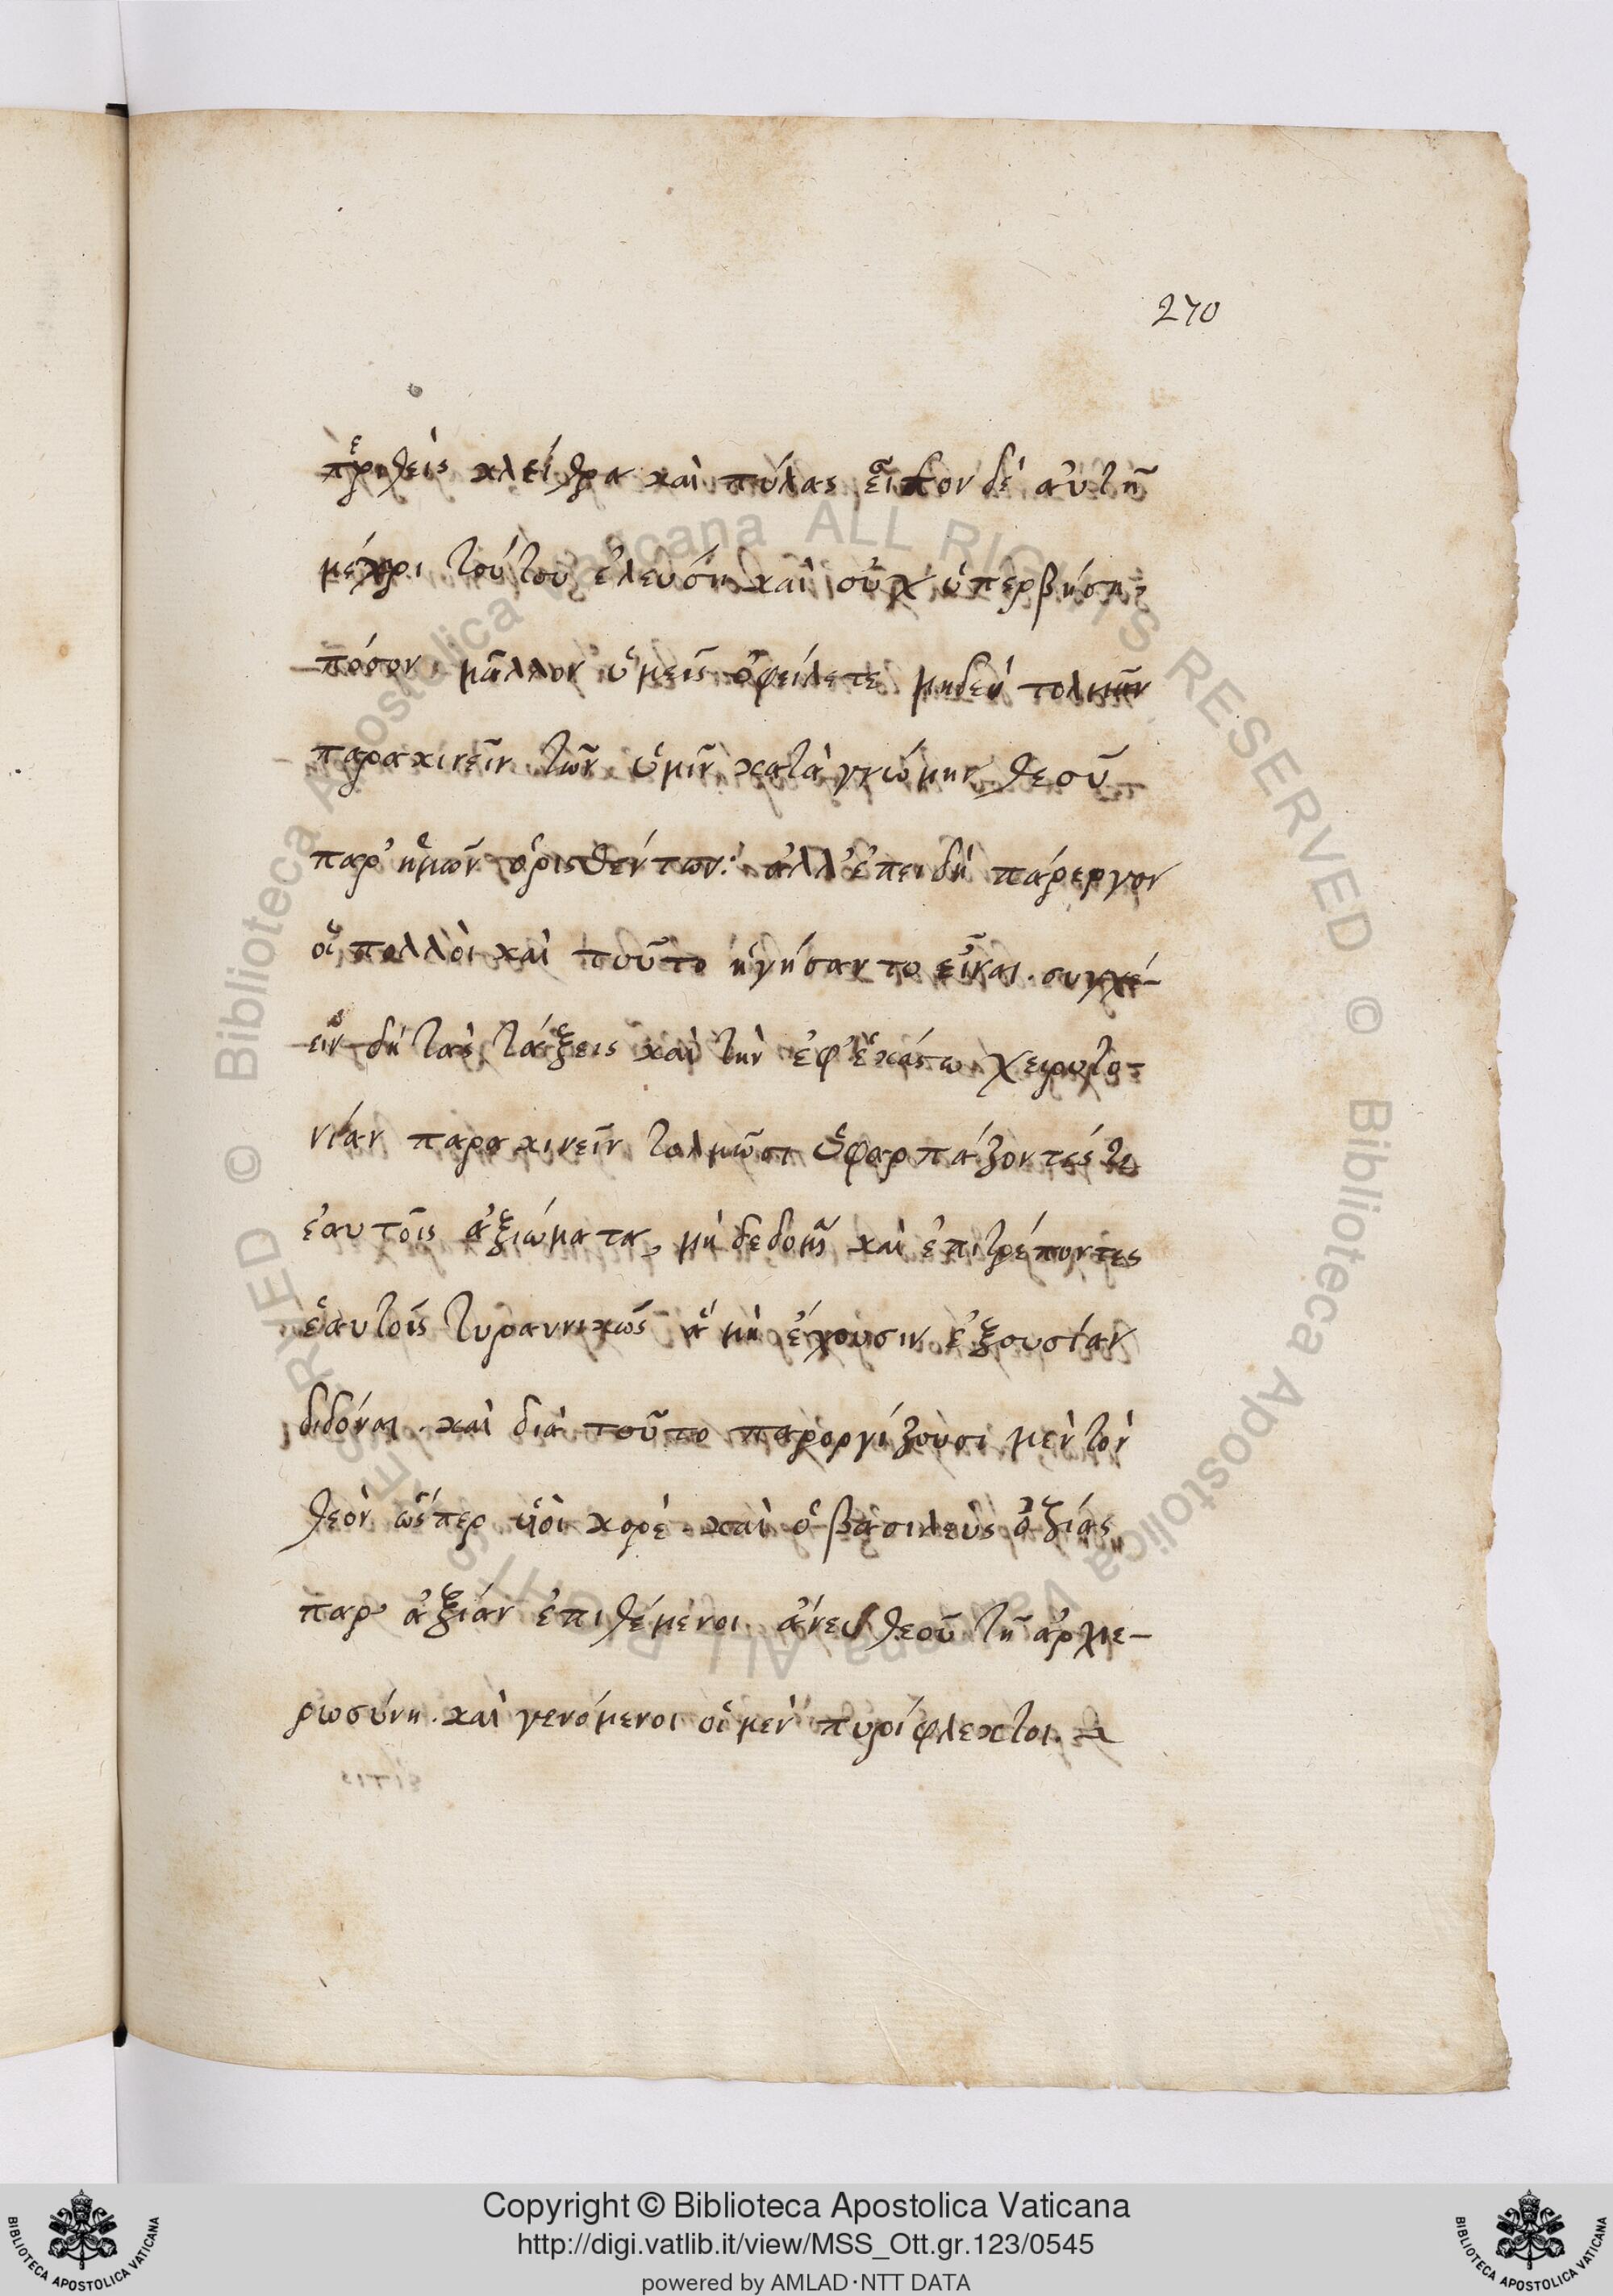 270
πε̈ριθεὶς κλεῖθρα καὶ πύλας εἶπον δὲ αὐτῆ
μέχρι τούτου ἐλεύση καὶ οὐχ ὑπερβήση,
πόσον μᾶλλον ὑμεῖς ὀφείλετε μηδὲν τολμᾶν
παρακινεῖν τῶν ὑμῖν κατὰ γνώμην θεοῦ
παρ' ἡμῶν ὁρισθέντων· ἀλλ' ἐπειδὴ πάρεργον
οἱ πολλοὶ καὶ τοῦτο ἡγήσαντο εἶναι. συγχέ-
ειν δὴ τὰς τάξεις καὶ τὴν ἐφ' ἑκάστω χειροτο-
νίαν παρακινεῖν τολμῶσι ὑφαρπάζοντές τε
ἑαυτοῖς ἀξιώματα, μὴ δεδομ καὶ ἐπιτρέποντες
ἑαυτοῖς τυραννικῶς ἃ μὴ ἔχουσιν ἐξουσίαν
διδόναι. καὶ διὰ τοῦτο παροργίζουσι μὲν τὸν
θεὸν ὥσπερ υἱοὶ κορὲ. καὶ ὁ βασιλεὺς ὀζίας
παρ' ἀξίαν ἐπιθέμενοι ἄνευ θεοῦ τῆ ἀρχιε-
ρωσύνη. καὶ γενόμενοι οἱ μὲν πυρίφλεκτοι.
Copyright © Biblioteca Apostolica Vaticana
http://digi.vatlib.it/view/MSS_Ott.gr.123/0545
powered by AMLAD·NTT DATA
BIBLIOTECA APOSTOLICA VATICANA
BIBLIOTECA APOSTOLICA VATICANA
© Biblioteca Apostolica Vaticana ALL RIGHTS RESERVED © Biblioteca Apostolica Vaticana ALL RIGHTS RESERVED